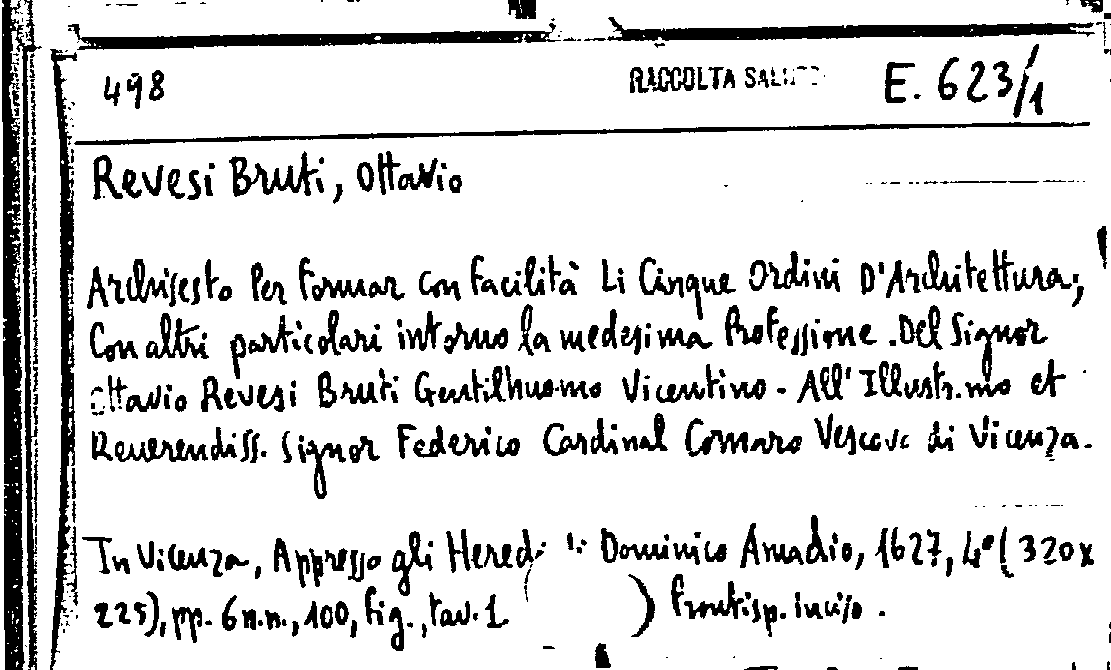 498 RACCOLTA E. 623/1
Revesi Bruti, Ottavio
Archisesto Per formar con facilità Li Cinque Ordini D'Architettura;
Con altri particolari intorno la medesima Professione. Del Signor
Ottavio Revesi Bruti Gentilhuomo Vicentino - All'Illustr.mo et
Reverendiss. Signor Federico Cardinal Cornaro Vescovo di Vicenza.
In Vicenza, Appresso gli Heredi di Dominico Amadio, 1627, 4° (320x
225), pp. 6 n.n., 100, fig., tav. 1 ( ) frontisp. inciso.